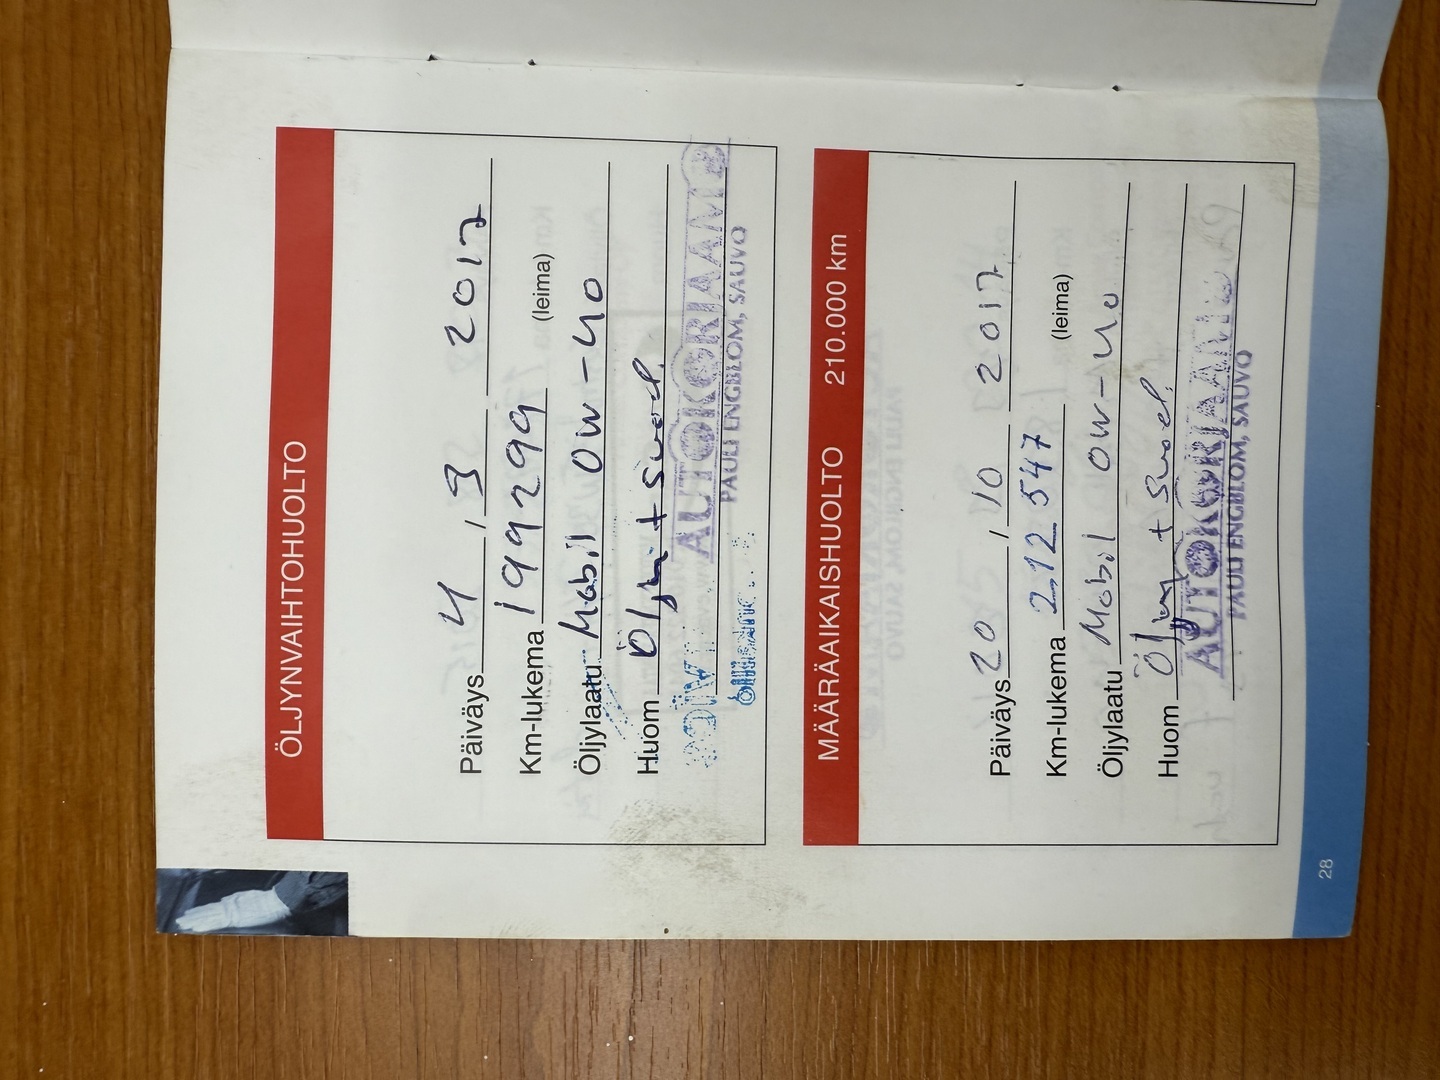 ÖLJYNVAIHTOHUOLTO
Päiväys 4 , 3 2017
Km-lukema 199299 (leima)
Öljylaatu Mobil 0W-40
Huom Öljyn + suod.
AUTOKORJAAMO
PAULI ENGBLOM, SAUVO
MÄÄRÄAIKAISHUOLTO 210.000 km
Päiväys 20 , 10 2017
Km-lukema 212 547 (leima)
Öljylaatu Mobil 0W-40
Huom Öljyn + Suod.
AUTOKORJAAMO
PAULI ENGBLOM, SAUVO
28